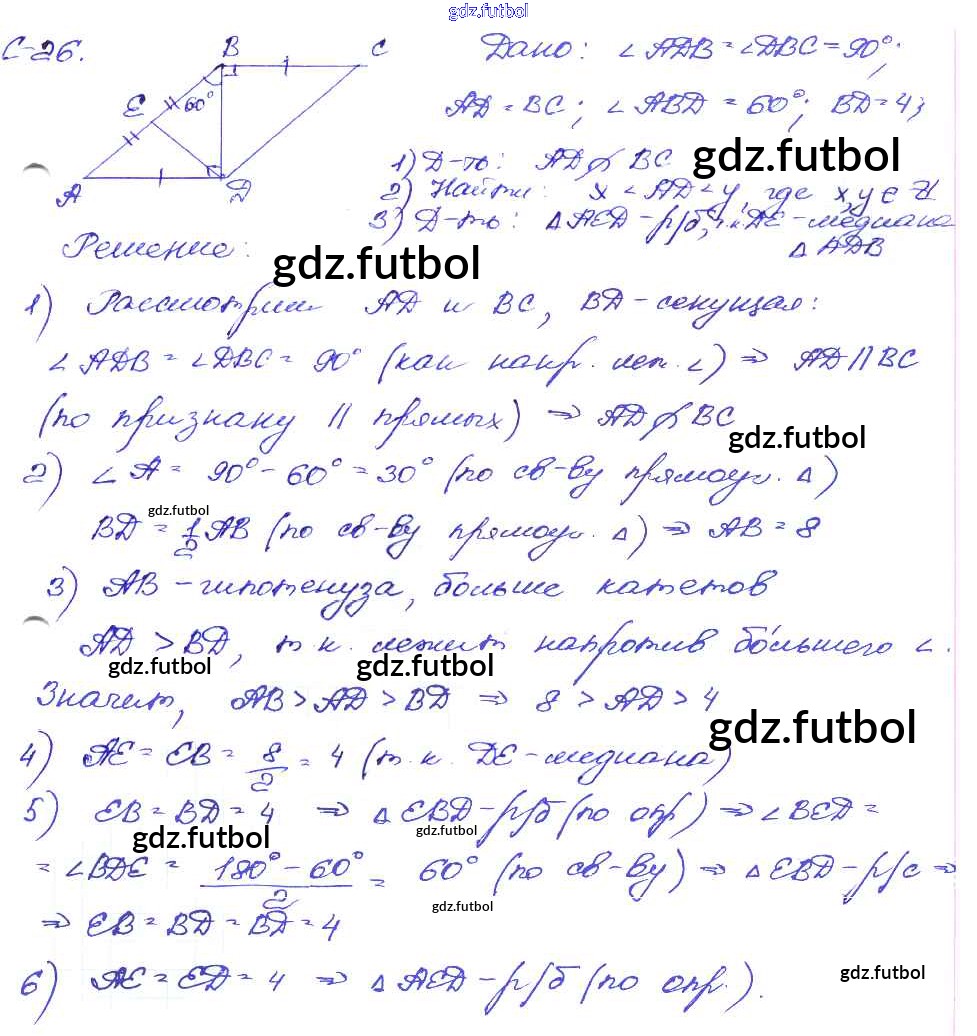 gdz.futbol
С-26.
B C
E 60°
A D
Дано: ∠ADB = ∠DBC = 90°;
AD = BC; ∠ABD = 60°; BD = 4;
1) Д-ть: AD ∦ BC gdz.futbol
2) Найти: x < AD < y, где x, y ∈ Z
3) Д-ть: △AED - р/б, DE - медиана
△ADB
Решение: gdz.futbol
1) Рассмотрим AD и BC, BD - секущая:
∠ADB = ∠DBC = 90° (как накр. леж. ∠) ⇒ AD || BC
(по признаку || прямых) ⇒ AD ∦ BC
gdz.futbol
2) ∠A = 90° - 60° = 30° (по св-ву прямоуг. △)
gdz.futbol
BD = 1/2 AB (по св-ву прямоуг. △) ⇒ AB = 8
3) AB - гипотенуза, больше катетов
AD > BD, т.к. лежит напротив бо́льшего ∠.
gdz.futbol gdz.futbol
Значит, AB > AD > BD ⇒ 8 > AD > 4
gdz.futbol
4) AE = EB = 8/2 = 4 (т.к. DE - медиана)
5) EB = BD = 4 ⇒ △EBD - р/б (по опр) ⇒ ∠BED =
gdz.futbol gdz.futbol
= ∠BDE = (180° - 60°)/2 = 60° (по св-ву) ⇒ △EBD - р/с ⇒
gdz.futbol
⇒ EB = BD = BD = 4
6) AE = ED = 4 ⇒ △AED - р/б (по опр.).
gdz.futbol